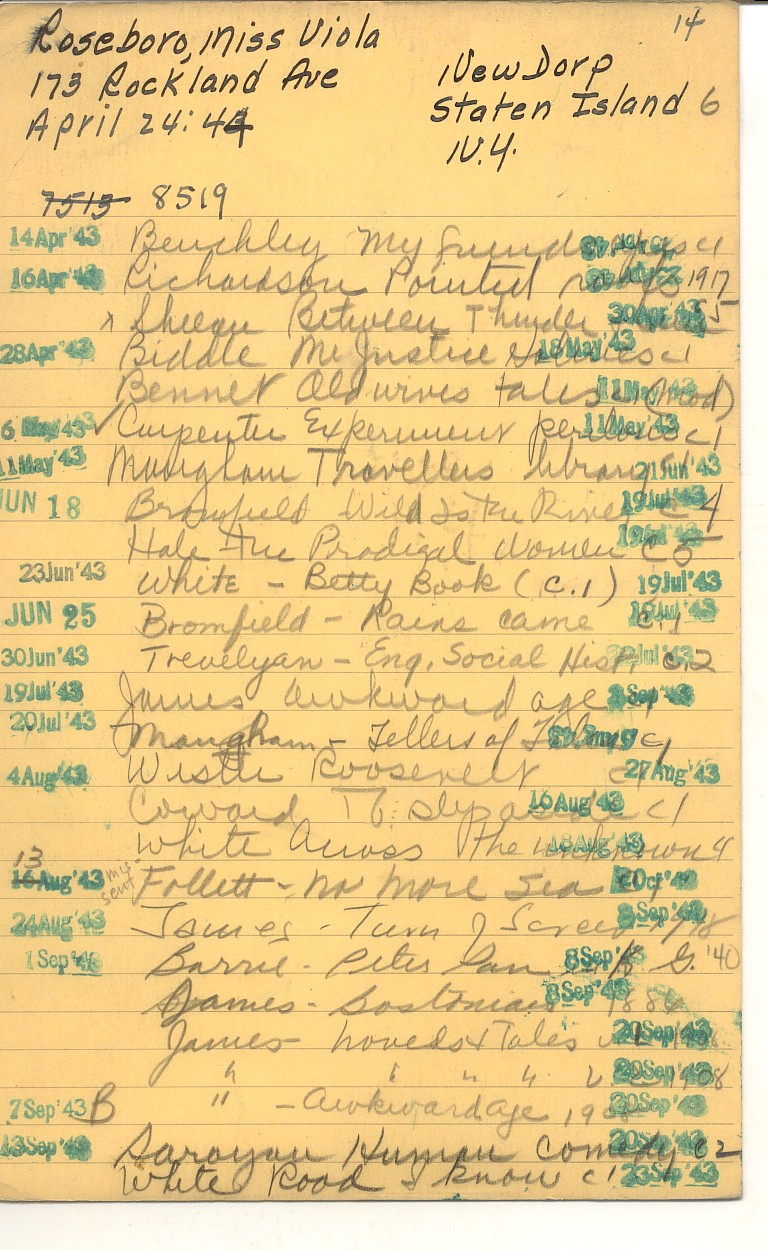 14
Roseboro, Miss Viola
173 Rockland Ave New Dorp
April 24: 44 Staten Island 6
N.Y.
7513 8519
14Apr'43 Benchley My friend c1
16Apr'43 Richardson Pointed 1917
x Sheean Between Thunder 30Apr'43 5
28Apr'43 Biddle Mr Justice Holmes c1 18May'43
Bennet Old wives tales (Mod) 11May'43
6 May'43 ✓ Carpenter Experiment perilous c1 11May'43
11May'43 Maugham Travellers library 21Jun'43
JUN 18 Bromfield Wild Is the River c 4 19Jul'43
Hale - the Prodigal Women c5 19Jul'43
23Jun'43 White - Betty Book (c.1) 19Jul'43
JUN 25 Bromfield - Rains came c.1 19Jul'43
30Jun'43 Trevelyan - Eng. Social Hist. c.2
19Jul'43 James Awkward age Sep'43
20Jul'43 Maugham - Tellers of Tales c1
4Aug'43 Wister Roosevelt c1 27Aug'43
Coward To step aside c1 16Aug'43
White Across the unknown 4 18Aug'43
13
16Aug'43 mis-sent Follett - No More Sea Oct'43
24Aug'43 James - Turn of Screw 8Sep'43
1Sep'43 Barrie - Peter Pan in K. G. '40 8Sep'43
James - Bostonians 8Sep'43
James - Novels & Tales 20Sep'43
" " " " 1908 20Sep'43
7Sep'43 B " - Awkward age 20Sep'43
13Sep'43 Saroyan Human Comedy c2 20Sep'43
White Road I know c1 23Sep'43